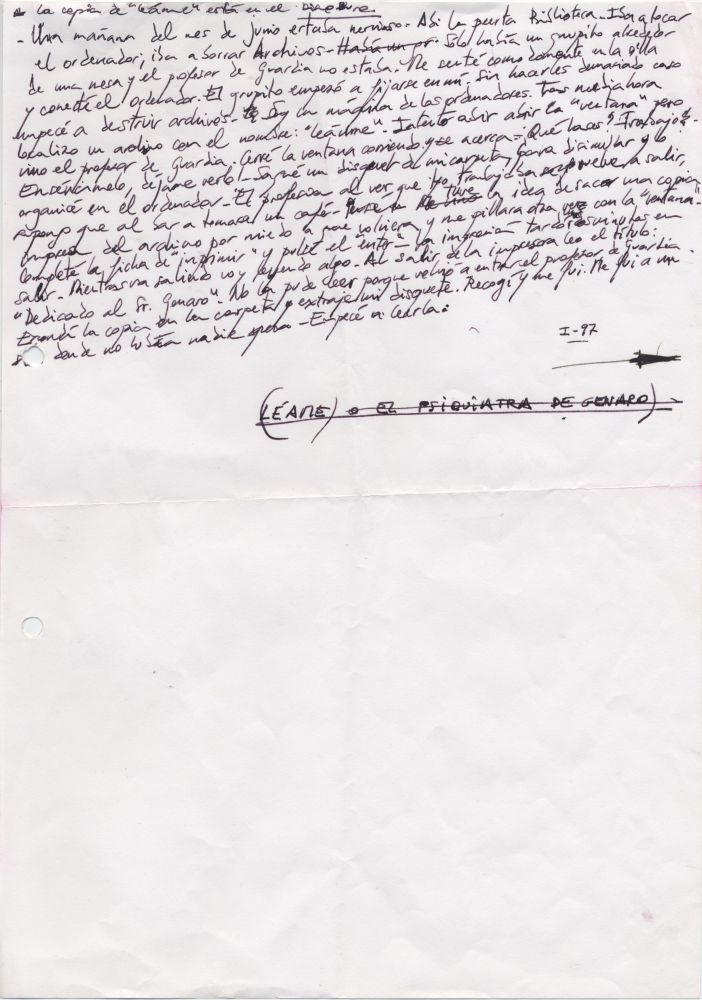 - La copia de "Leáme" está en el
- Una mañana del mes de junio estaba nervioso. Abí la puerta Biblioteca. Iba a tocar
el ordenador; iba a borrar Archivos - Había un gr. Solo había un grupito alrededor
de una mesa y el profesor de Guardia no estaba. Me senté comodamente en la silla
y conecté el ordenador. El grupito empezó a fijarse en mi. Sin hacerles demasiado caso
empecé a destruir archivos - Soy la máquina de los ordenadores. Tras media hora
localizo un archivo con el nombre: "leáme". Intento abrir abrir la "ventana" pero
vino el profesor de guardia. Cerré la ventana corriendo y se acerca = Qué haces? Trabajo?
Enséñamelo, déjame verlo - Saqué un disquet de mi carpeta, para disimular y lo
organicé en el ordenador - El profesor al ver que yo, trabajo se vuelve a salir,
supongo que al bar a tomarse un café - tuve la idea de sacar una copia
impresa del archivo por miedo a que volviera y me pillara otra vez con la "ventana".
Completé la ficha de "imprimir" y pulsé el enter - La impresión tardó minutos en
salir. Mientras va saliendo voy leyendo algo. Al salir, de la impresora leo el título:
"Dedicado al Sr. Genaro". No la pude leer porque volvió a entrar el profesor de Guardia.
la copia en la carpeta y extraje mi disquete. Recogí y me fui. Me fui a un
donde no hubiera nadie - Empecé a leerla:
I-97
(LÉAME) o EL PSIQUIATRA DE GENARO)